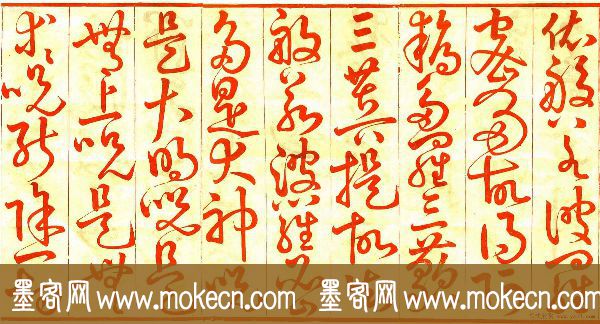 依般若波羅
蜜多故得阿
耨多羅三藐
三菩提故知
般若波羅蜜
多是大神咒
是大明咒是
無上咒是無
等等咒能除一
墨客网 www.mokecn.com 墨客网 www.mokecn.com